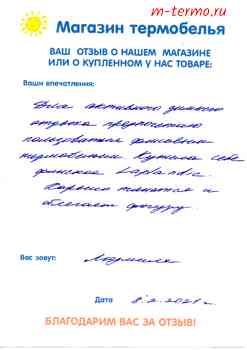 m-termo.ru
Магазин термобелья
ВАШ ОТЗЫВ О НАШЕМ МАГАЗИНЕ
ИЛИ О КУПЛЕННОМ У НАС ТОВАРЕ:
Ваши впечатления:
Для активного зимнего
отдыха предпочитаю
пользоваться финским
термобельем. Купила себе
финское Laplandic.
Хорошо тянется и
облегает фигуру
Вас зовут: Людмила
Дата 8.2.2021г
БЛАГОДАРИМ ВАС ЗА ОТЗЫВ!